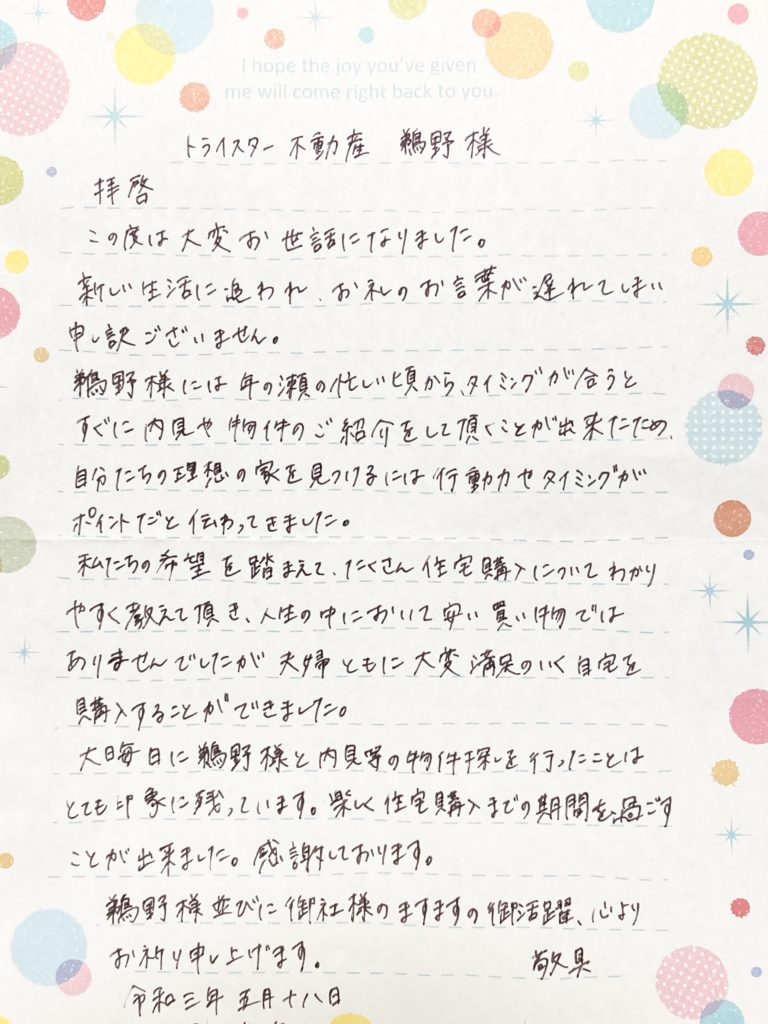 I hope the joy you've given
me will come right back to you.
トライスター不動産 鵜野様
拝啓
この度は大変お世話になりました。
新しい生活に追われ、お礼のお言葉が遅れてしまい
申し訳ございません。
鵜野様には年の瀬の忙しい頃から、タイミングが合うと
すぐに内見や物件のご紹介をして頂くことが出来たため、
自分たちの理想の家を見つけるには行動力やタイミングが
ポイントだと伝わってきました。
私たちの希望を踏まえて、たくさん住宅購入についてわかり
やすく教えて頂き、人生の中において安い買い物では
ありませんでしたが夫婦ともに大変満足のいく自宅を
購入することができました。
大晦日に鵜野様と内見等の物件探しを行ったことは
とても印象に残っています。楽しく住宅購入までの期間を過ごす
ことが出来ました。感謝しております。
鵜野様並びに御社様のますますの御活躍、心より
お祈り申し上げます。
敬具
令和三年五月十八日